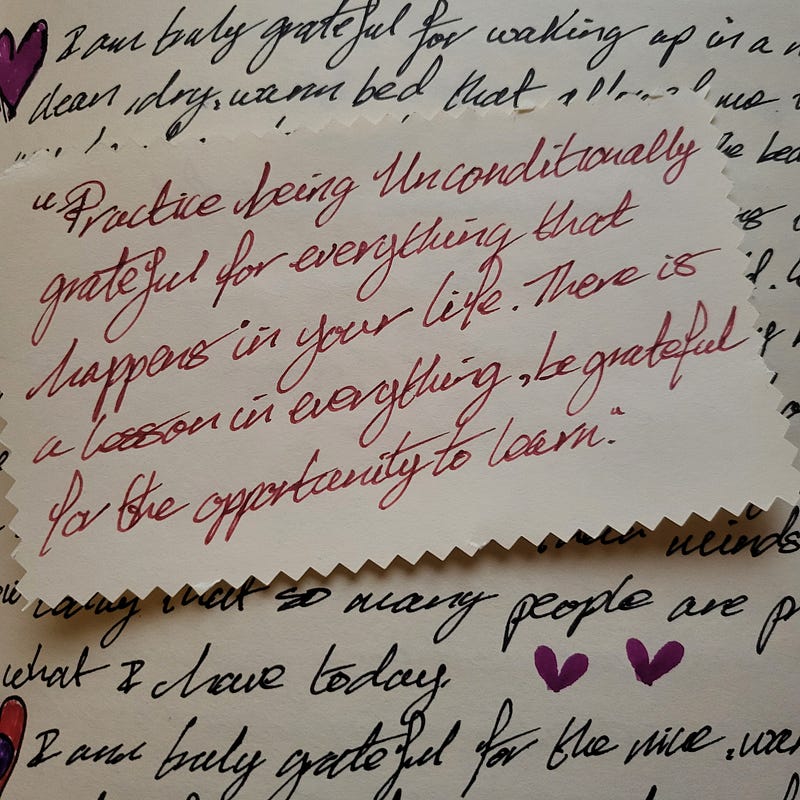 I am truly grateful for waking up in a
clean, dry, warm bed that me
"Practice being Unconditionally
grateful for everything that
happens in your life. There is
a lesson in everything, be grateful
for the opportunity to learn."
minds
that so many people are
what I have today.
I am truly grateful for the nice,